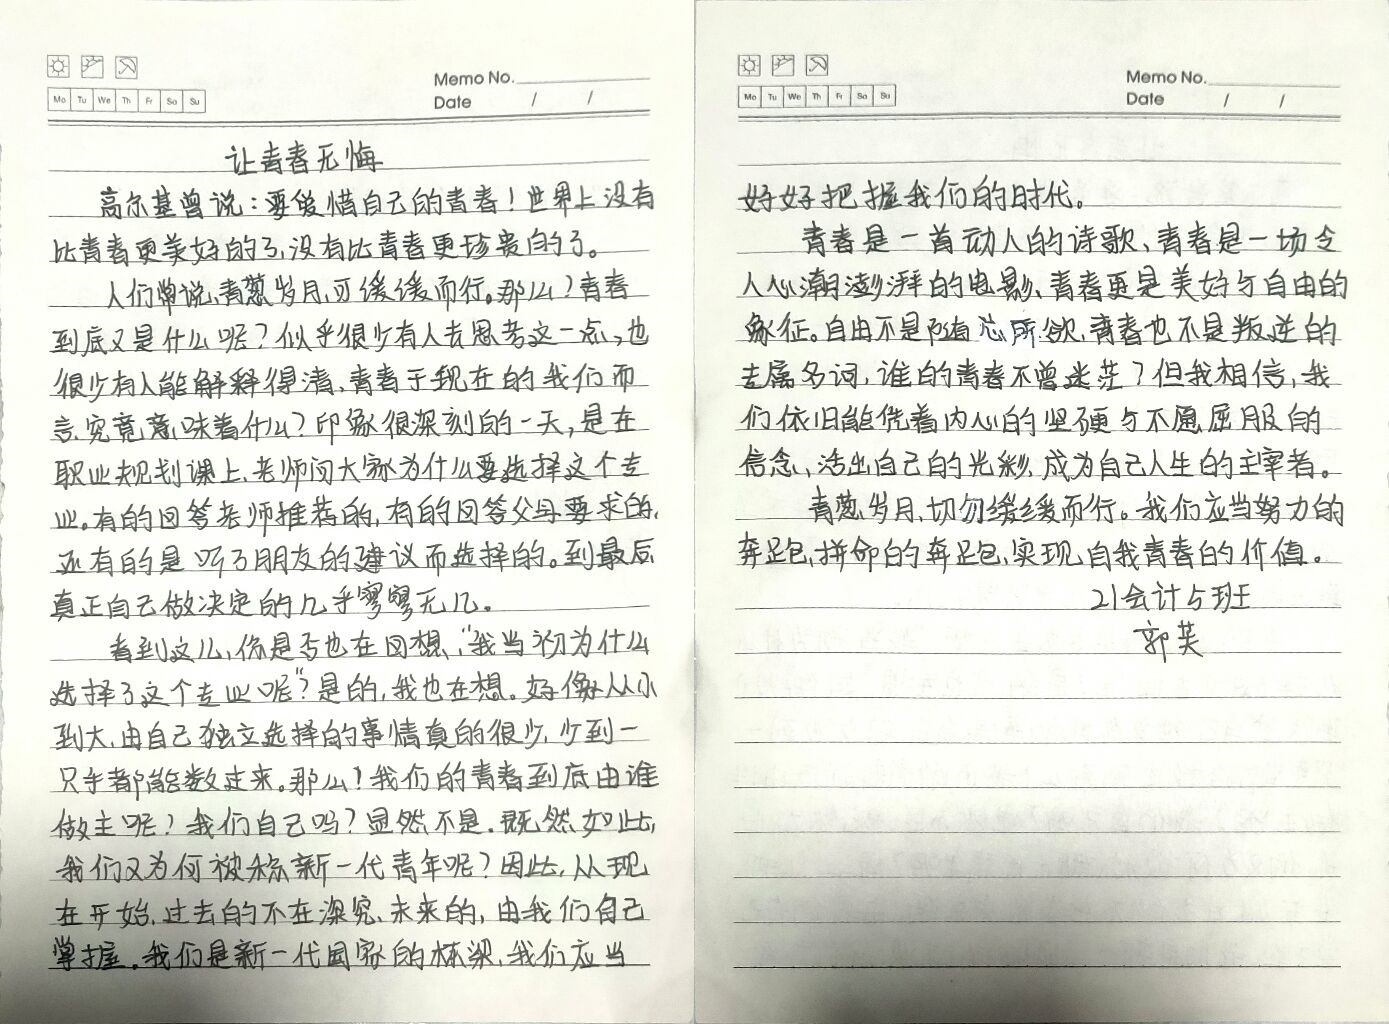 Memo No.
Mo Tu We Th Fr Sa Su
Date / /
让青春无悔
高尔基曾说：要爱惜自己的青春！世界上没有
比青春更美好的了，没有比青春更珍贵的了。
人们常说，青葱岁月，可缓缓而行。那么？青春
到底又是什么呢？似乎很少有人去思考这一点，也
很少有人能解释得清，青春于现在的我们而
言，究竟意味着什么？印象很深刻的一天，是在
职业规划课上，老师问大家为什么要选择这个专
业。有的回答老师推荐的，有的回答父母要求的，
还有的是听了朋友的建议而选择的。到最后
真正自己做决定的几乎寥寥无几。
看到这儿，你是否也在回想，“我当初为什么
选择了这个专业呢”？是的，我也在想。好像从小
到大，由自己独立选择的事情真的很少，少到一
只手都能数过来。那么！我们的青春到底由谁
做主呢？我们自己吗？显然不是。既然如此，
我们又为何被称新一代青年呢？因此，从现
在开始，过去的不在深究，未来的，由我们自己
掌握。我们是新一代国家的栋梁，我们应当
Memo No.
Mo Tu We Th Fr Sa Su
Date / /
好好把握我们的时代。
青春是一首动人的诗歌、青春是一场令
人心潮澎湃的电影、青春更是美好与自由的
象征。自由不是随心所欲，青春也不是叛逆的
专属名词，谁的青春不曾迷茫？但我相信，我
们依旧能凭着内心的坚硬与不愿屈服的
信念，活出自己的光彩，成为自己人生的主宰者。
青葱岁月，切勿缓缓而行。我们应当努力的
奔跑，拼命的奔跑，实现自我青春的价值。
21会计5班
郭芙